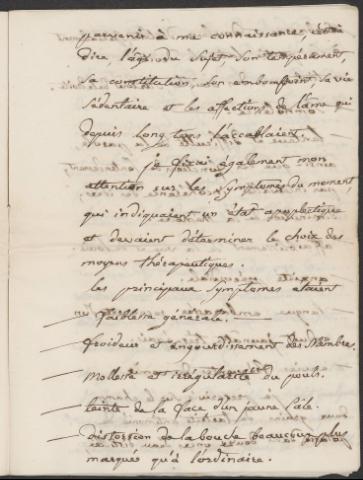 parvenir à ma connaissance,
dire l'âge du Sujet son tempérament,
Sa constitution, son embonpoint, sa vie
Sédentaire et les affections de l'ame qui
depuis long tems l'accablaient.
je fixai également mon
attention sur les Symptomes du moment
qui indiquaient un état apoplectique
et devaient déterminer le choix des
moyens thérapeutiques.
les principaux Symptomes étaient
— faiblesse générale.
— froideur et engourdissement des Membres.
— Mollesse et irrégularité du pouls.
— teinte de la face d'un jaune Pâle.
— distorsion de la bouche beaucoup plus
marquée qu'à l'ordinaire.